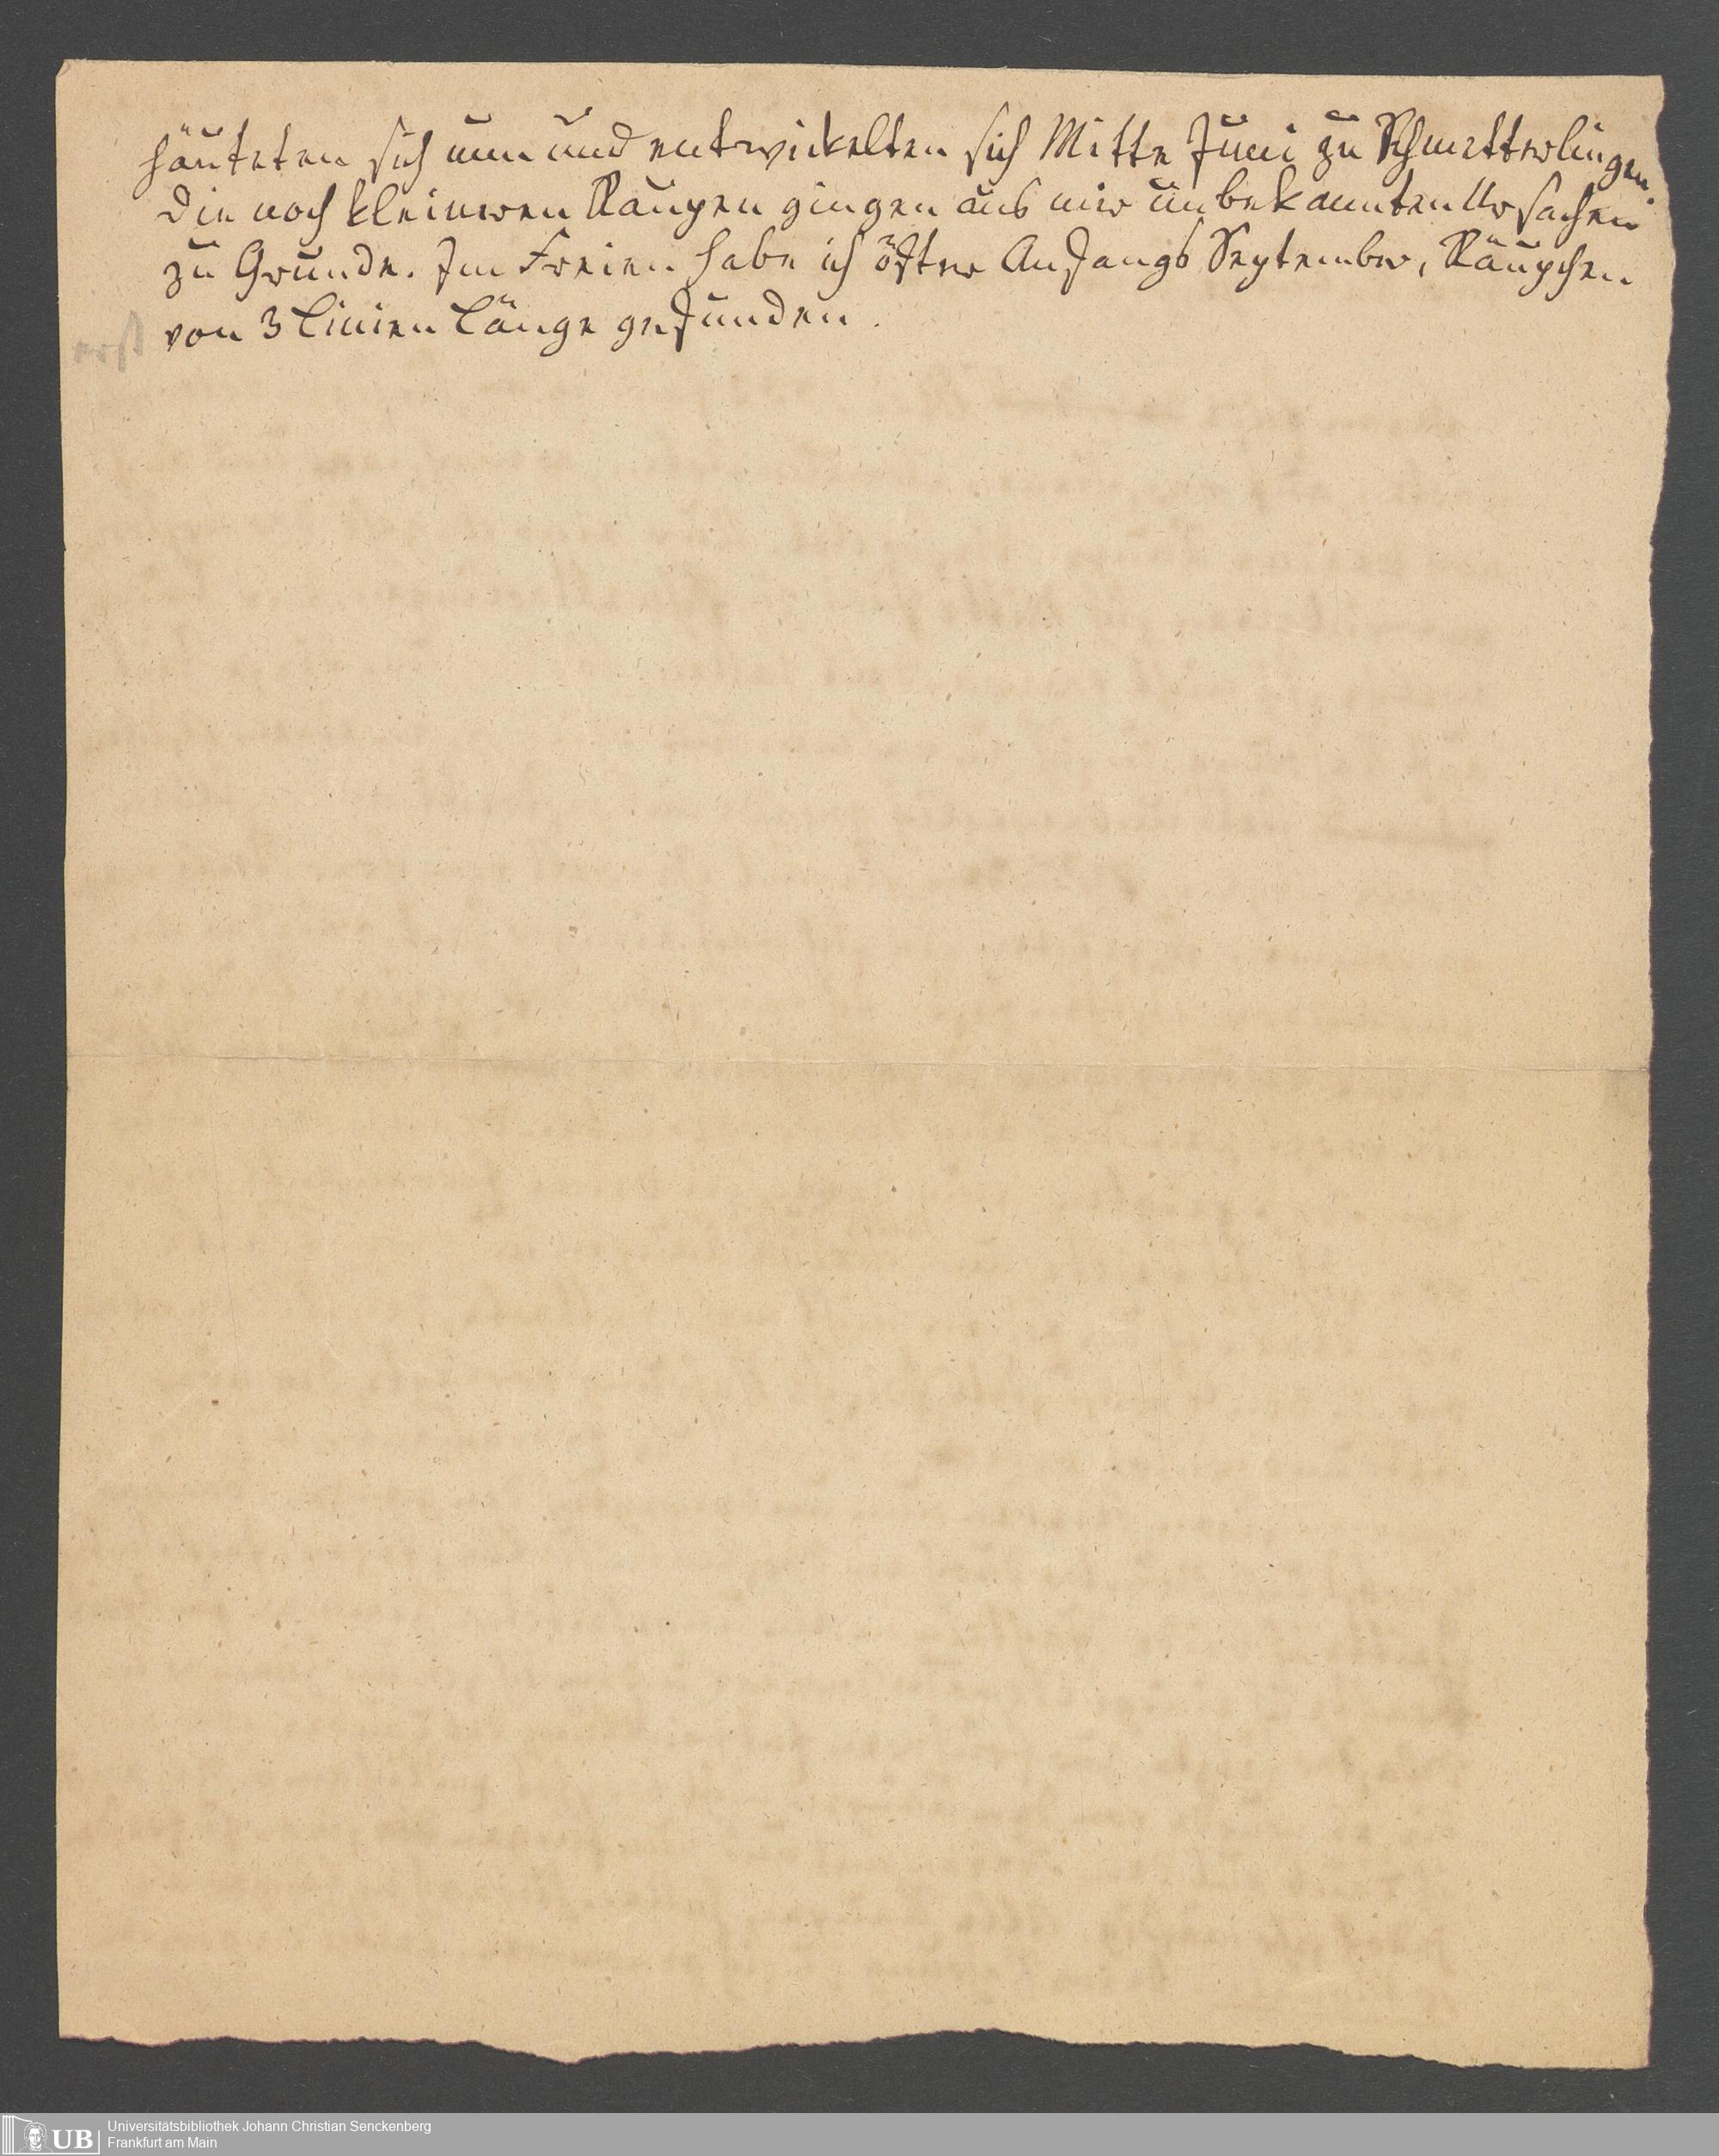 häuteten sich nun und entwickelten sich Mitte Juni zu Schmetterlingen
die noch kleineren Raupen gingen aus mir unbekannten Ursachen
zu Grunde. Im Freien habe ich öfter Anfangs September, Räupchen
erst von 3 Linien Länge gefunden.
UB Universitätsbibliothek Johann Christian Senckenberg
Frankfurt am Main